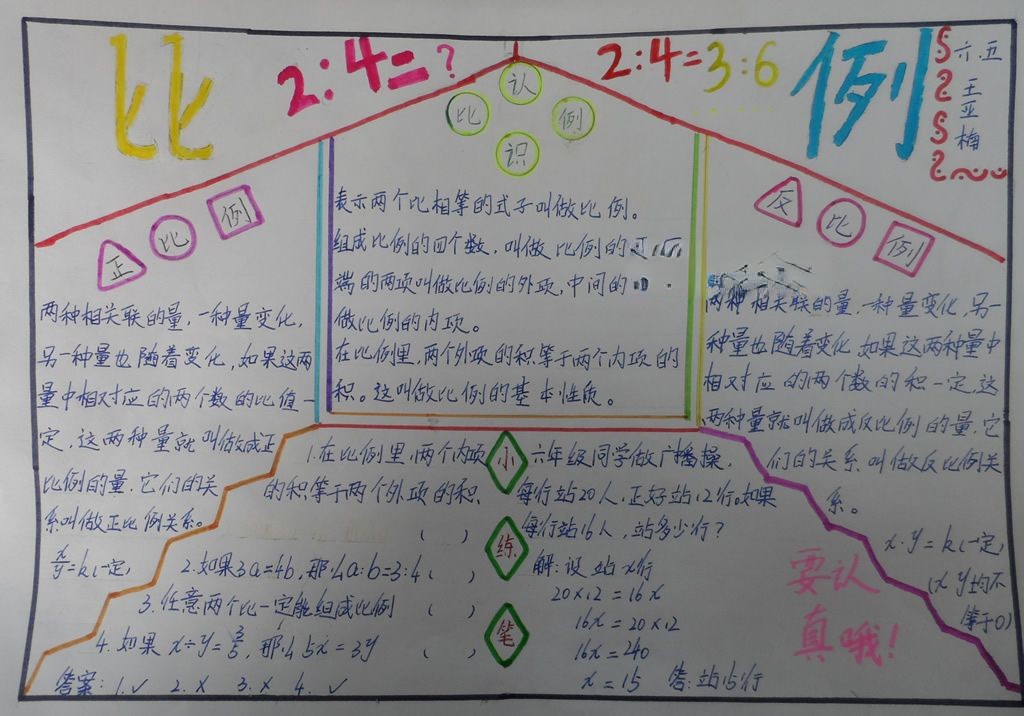 比
2:4=?
2:4=3:6
例
六.五
王亚梅
认
比 例
识
表示两个比相等的式子叫做比例。
组成比例的四个数，叫做比例的
端的两项叫做比例的外项，中间的
做比例的内项。
在比例里，两个外项的积等于两个内项的
积。这叫做比例的基本性质。
正比例
两种相关联的量，一种量变化，
另一种量也随着变化，如果这两
量中相对应的两个数的比值一
定，这两种量就叫做成正
比例的量，它们的关
系叫做正比例关系。
x/y=k(一定)
反比例
两种相关联的量，一种量变化，另一
种量也随着变化，如果这两种量中
相对应的两个数的积一定，这
两种量就叫做成反比例的量，它
们的关系叫做反比例关
系。
x·y=k(一定)
(x y均不
等于0)
小练笔
1.在比例里，两个内项
的积等于两个外项的积
( )
2.如果3a=4b，那么a:b=3:4( )
3.任意两个比一定能组成比例 ( )
4.如果x÷y=3/5，那么5x=3y ( )
答案：1.√ 2.× 3.× 4.√
六年级同学做广播操，
每行站20人，正好站12行。如果
每行站16人，站多少行？
解：设站x行
20×12=16x
16x=20×12
16x=240
x=15 答：站15行
要认
真哦！